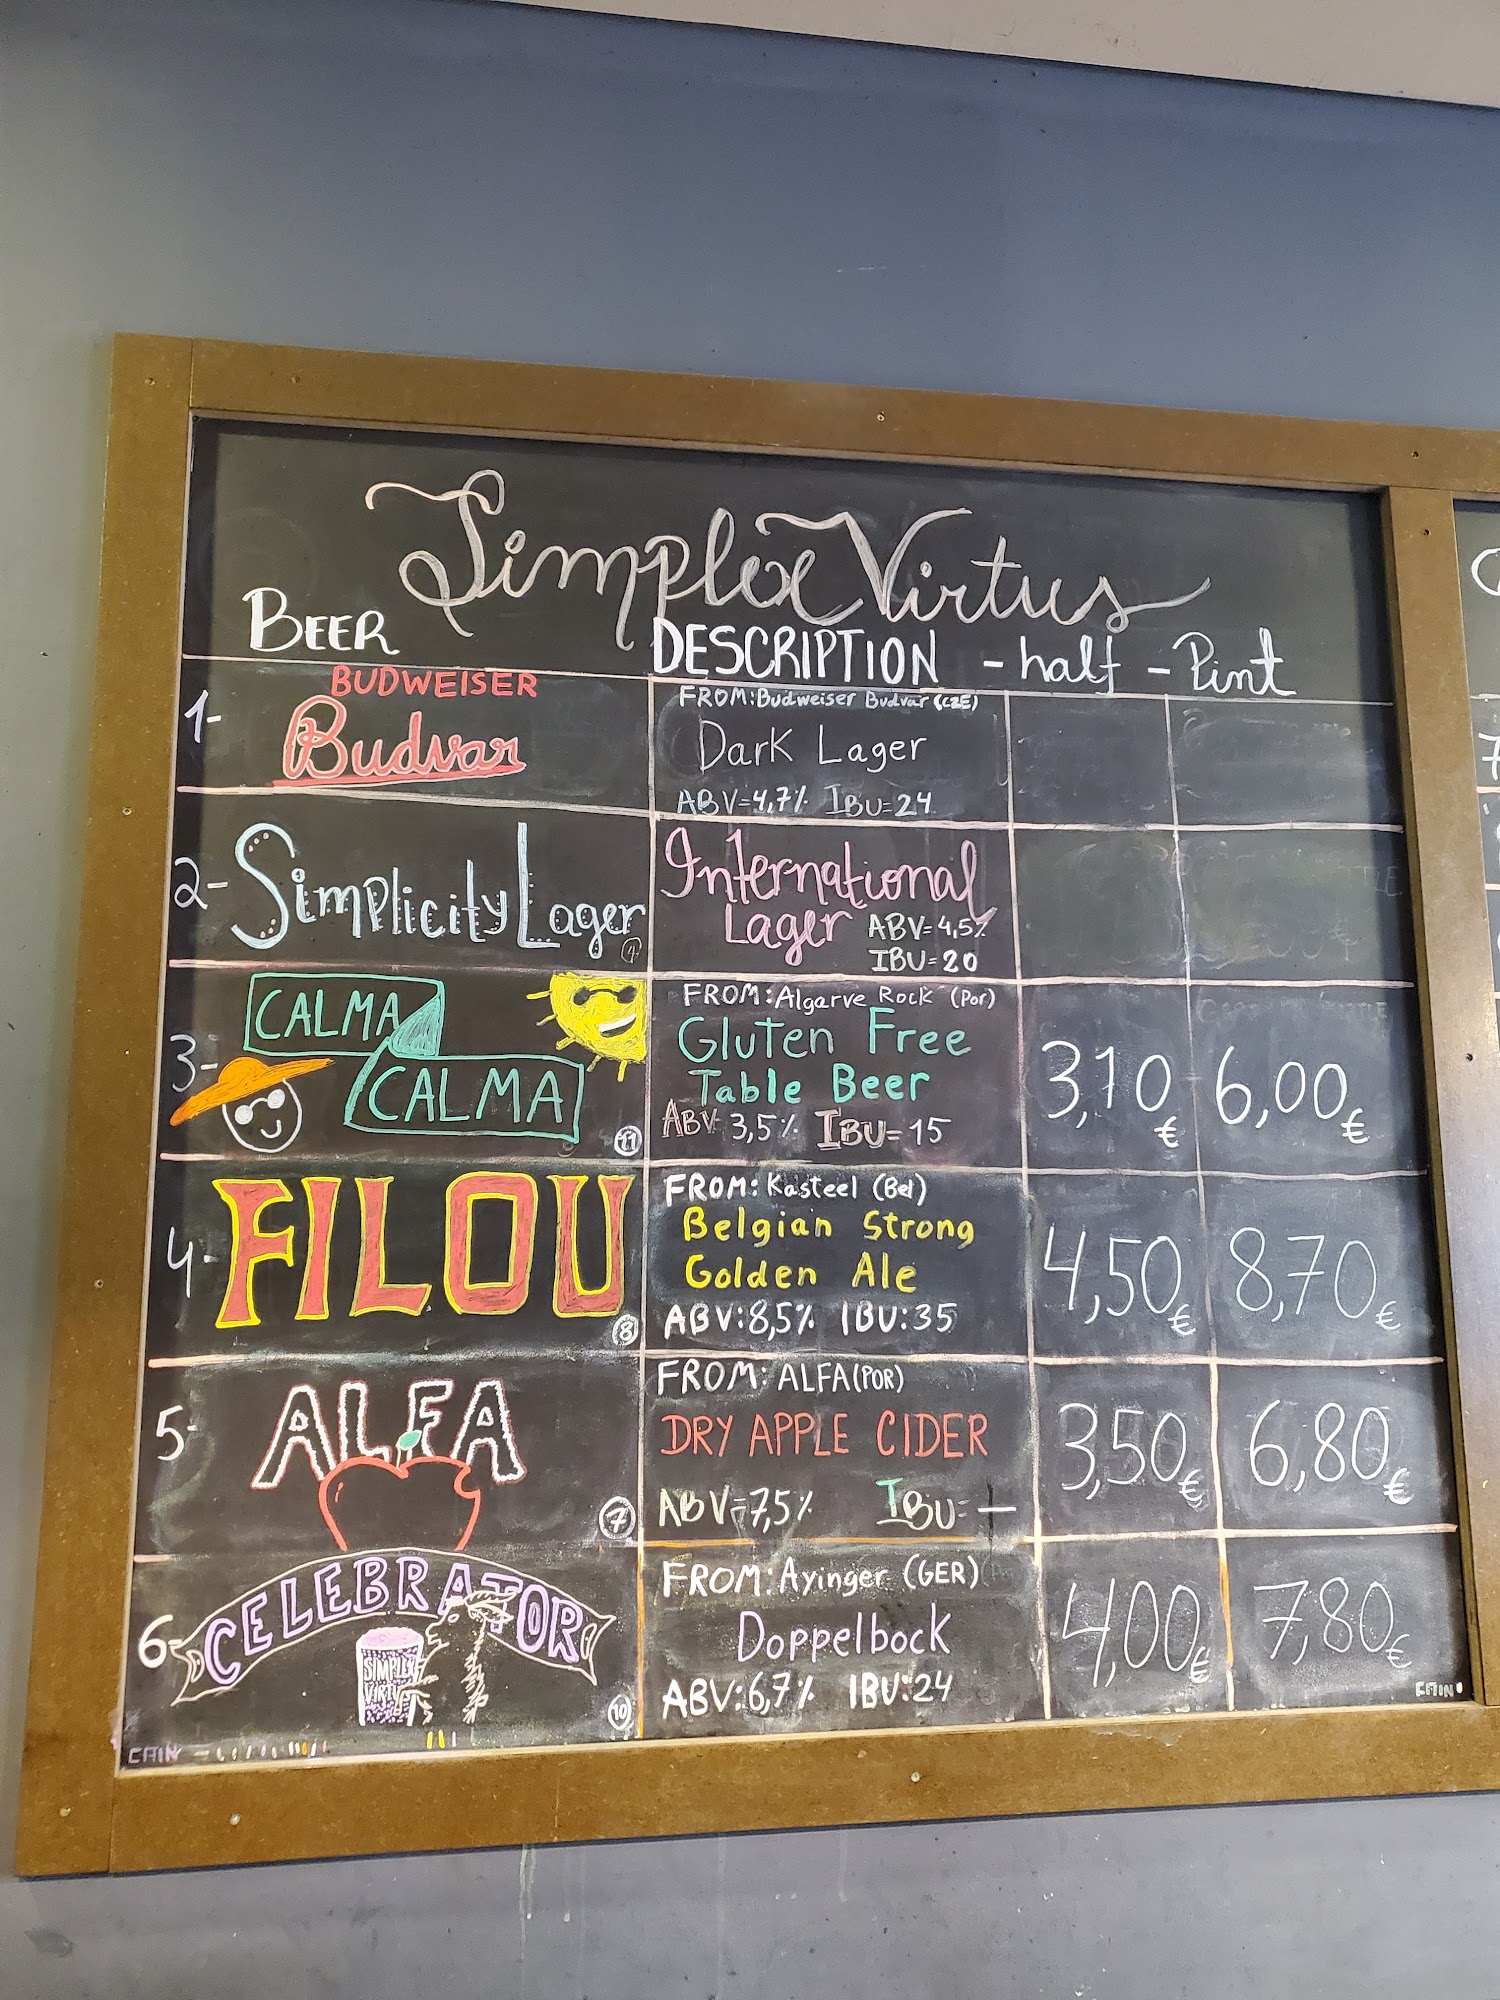 Simplex Virtus
BEER DESCRIPTION - half - Pint
1- BUDWEISER
Budvar
FROM: Budweiser Budvar (CZE)
Dark Lager
ABV=4,7% IBU=24
2- Simplicity Lager
International
Lager ABV=4,5%
IBU=20
3- CALMA
CALMA
11
FROM: Algarve Rock (Por)
Gluten Free
Table Beer
ABV 3,5% IBU=15
3,10€ 6,00€
4- FILOU
8
FROM: Kasteel (Bel)
Belgian Strong
Golden Ale
ABV:8,5% IBU:35
4,50€ 8,70€
5- ALFA
7
FROM: ALFA(POR)
DRY APPLE CIDER
ABV=7,5% IBU=—
3,50€ 6,80€
6- CELEBRATOR
SIMPLEX
VIRTUS
10
FROM: Ayinger (GER)
Doppelbock
ABV:6,7% IBU:24
4,00€ 7,80€